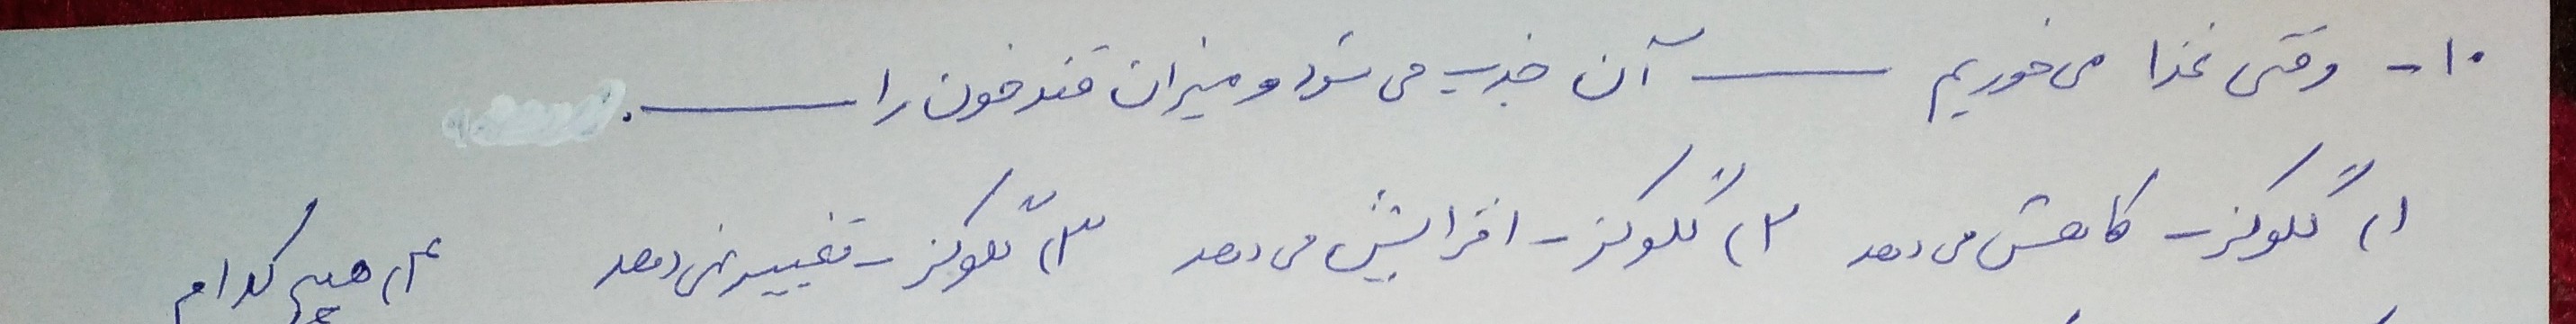 ۱۰- وقتی غذا می‌خوریم ــــــــ آن جذب می‌شود و میزان قند خون را ــــــــ.
۱) گلوکز - کاهش می‌دهد ۲) گلوکز - افزایش می‌دهد ۳) گلوکز - تغییر نمی‌دهد ۴) هیچ کدام